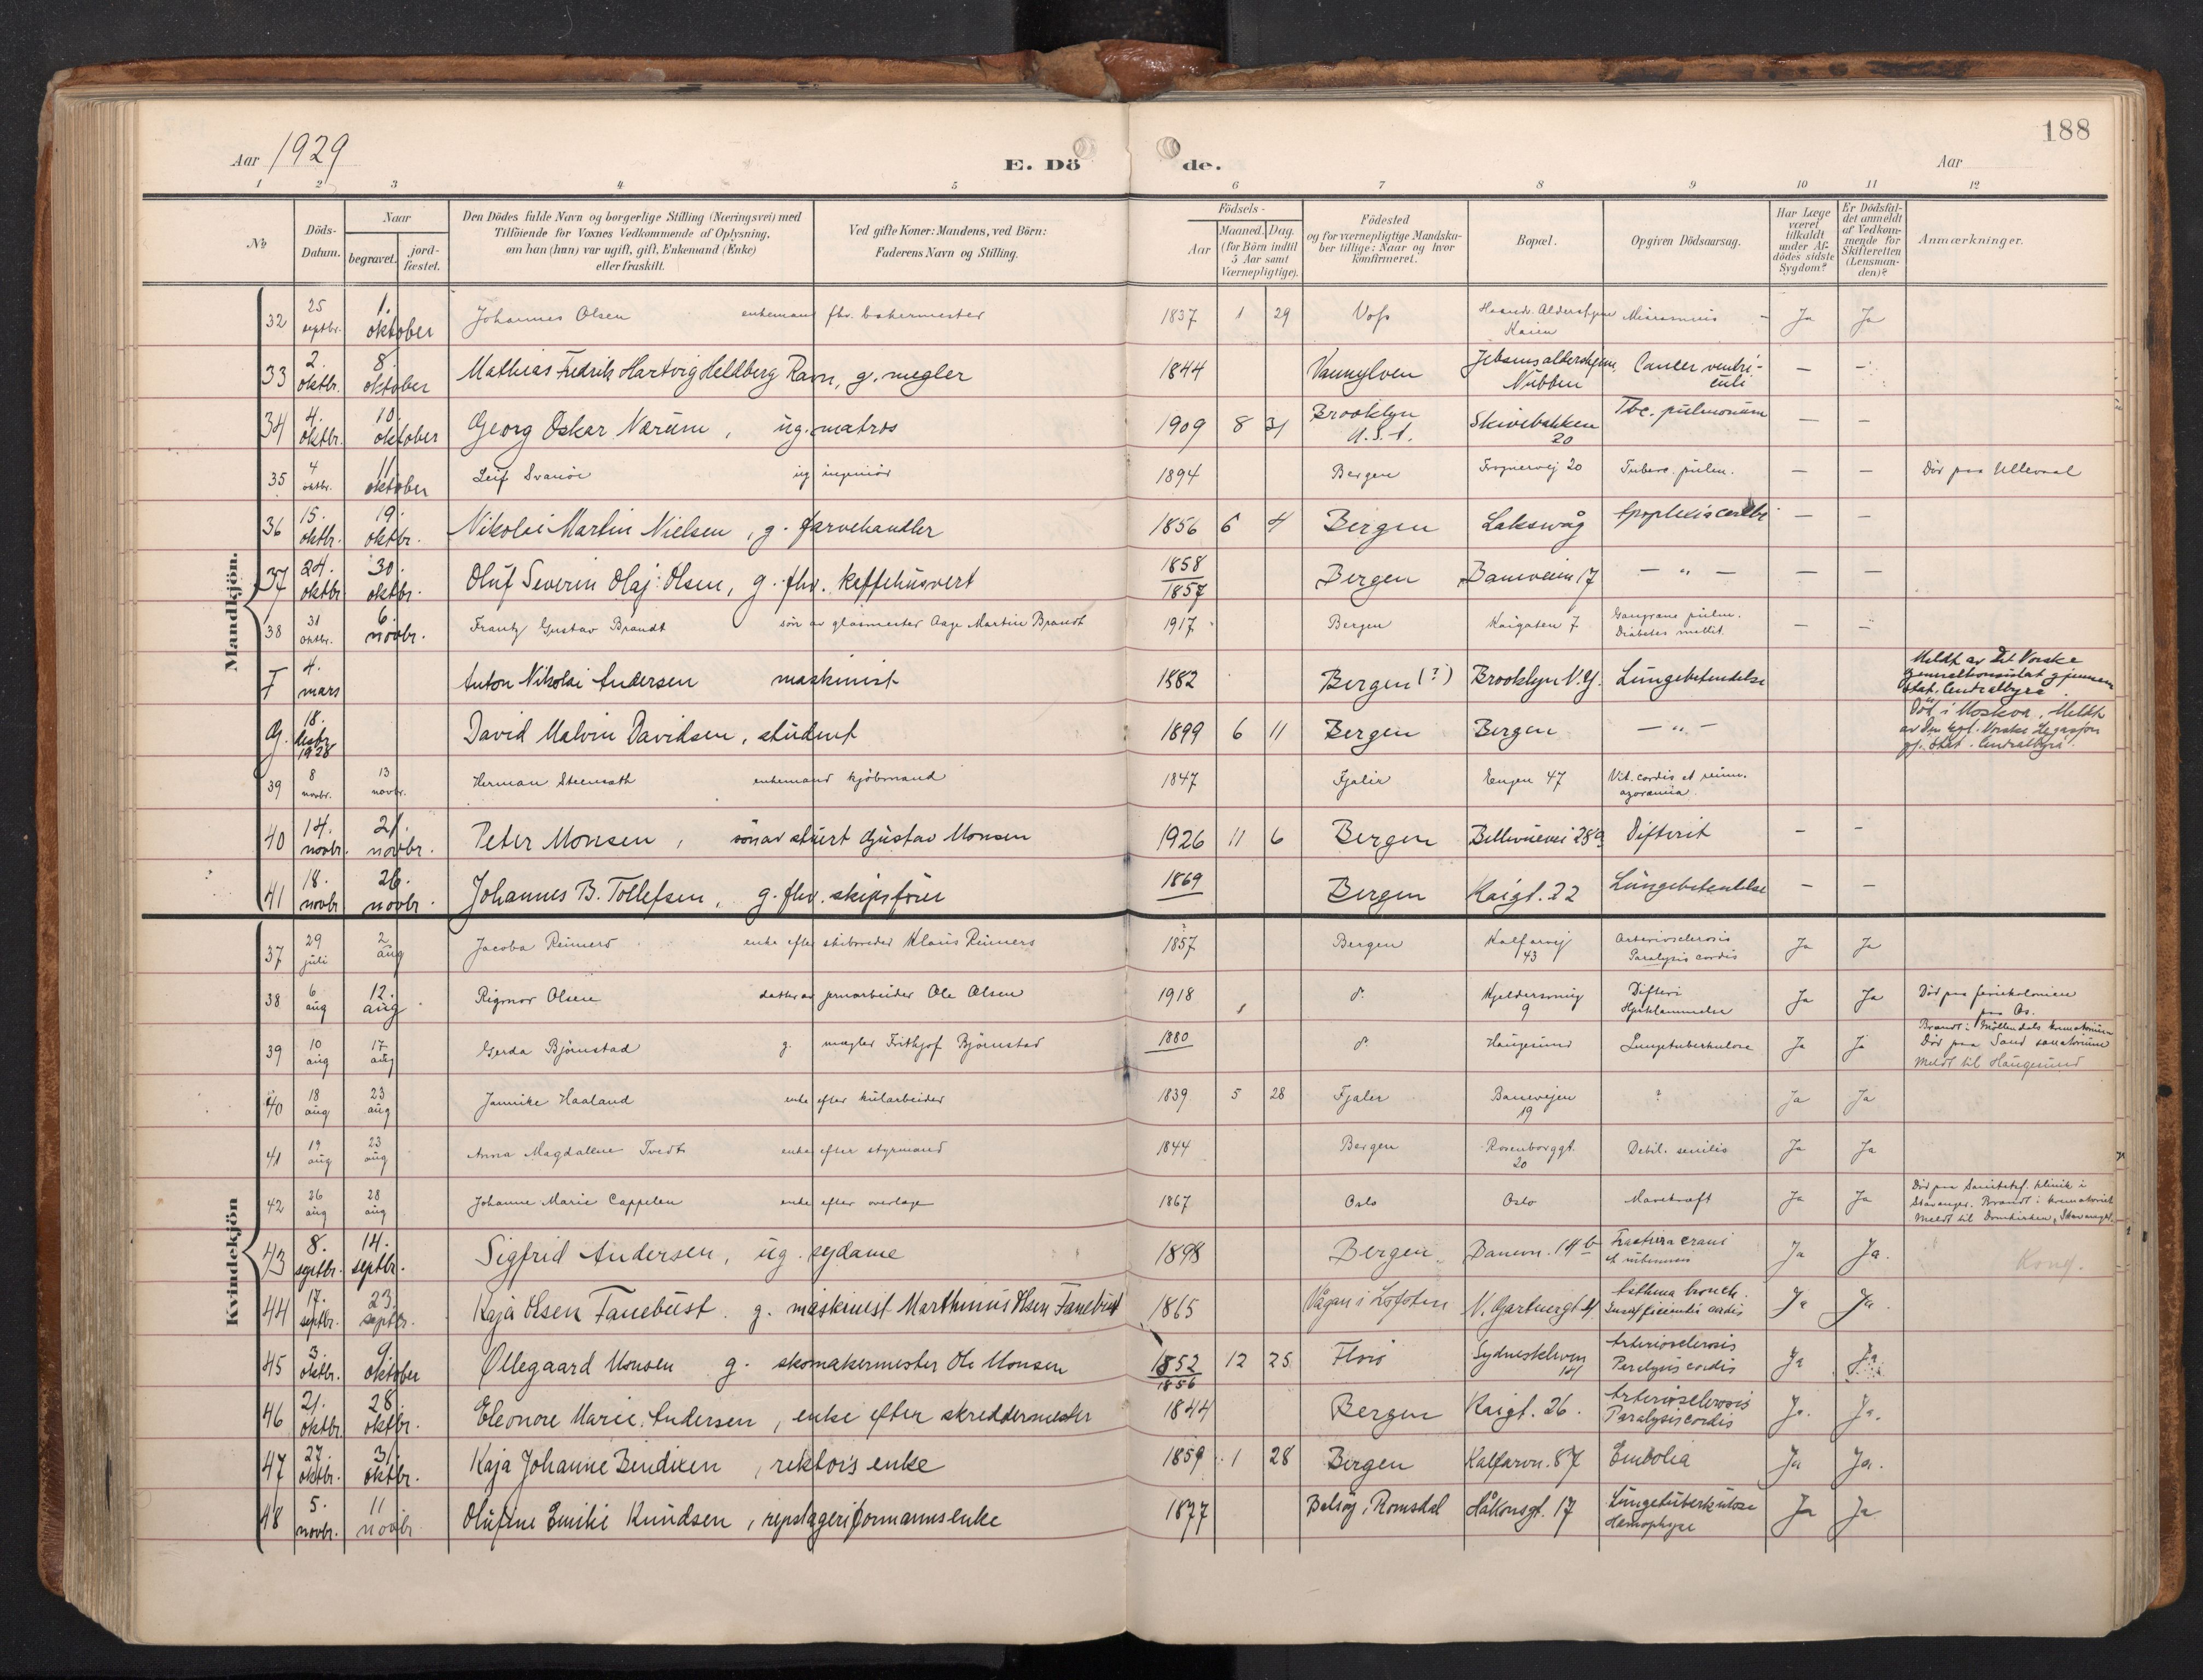 188
Aar 1929
E. Dö de.
Aar
1 2 3 4 5 6 7 8 9 10 11 12
№
Döds-
Datum.
Naar
begravet.
jord-
fæstet.
Den Dödes fulde Navn og borgerlige Stilling (Næringsvei) med
Tilföiende for Voxnes Vedkommende af Oplysning,
om han (hun) var ugift, gift, Enkemand (Enke)
eller fraskilt.
Ved gifte Koner: Mandens, ved Börn:
Faderens Navn og Stilling.
Födsels-
Aar
Maaned. Dag.
(for Börn indtil
5 Aar samt
Værnepligtige).
Födested
og for værnepligtige Mandska-
ber tillige: Naar og hvor
konfirmeret.
Bopæl.
Opgiven Dödsaarsag.
Har Læge
været
tilkaldt
under Af-
dödes sidste
Sygdom?
Er Dödsfal-
det anmeldt
af Vedkom-
mende for
Skifteretten
(Lensman-
den)?
Anmærkninger.
Mandkjön.
32 25 septbr. 1. oktober Johannes Olsen enkemand fhv. bakermester 1837 1 29 Voss Kaien Ja Ja
33 2. oktbr. 8. oktober Mathias Fredrik Hartvig Heldberg Ravn, g. megler 1844 Vannylven Jebsens aldershjem, Nubben Cancer ventri-
culi — —
34 4. oktbr. 10. oktober Georg Oskar Nærum, ug. matros 1909 8 31 Brooklyn
U.S.A. Skivebakken
20 Tbc. pulmonum — —
35 4 oktbr. 11. oktober Leif Svanöe ug ingeniör 1894 Bergen Frognervej 20 Tuberc. pulm. — — Död paa Ullevaal
36 15. oktbr. 19. oktbr. Nikolai Martin Nielsen, g. farvehandler 1856 6 4 Bergen Laksevåg Apoplexia cerebri — —
37 24. oktbr. 30. oktbr. Oluf Severin Olaj Olsen, g. fhv. kaffehusvert 1858
1857 Bergen Baneveien 17 — " — — —
38 31 oktbr. 6. novbr. Frantz Gustav Brandt sön av glasmester Aage Martin Brandt 1917 Bergen Kaigaten 7 Gangræne pulm.
Diabetes mellit. — "
F 4. mars Anton Nikolai Andersen maskinist 1882 Bergen (?) Brooklyn N.Y. Lungebetendelse Meldt av Det Norske
Generalkonsulat gjennem
Stat. Centralbyrå
G. 18. desbr. 1928 David Malvin Davidsen, student 1899 6 11 Bergen Bergen — " — Död i Moskva. Meldt
av Den kgl. Norske Legasjon
gj. Stat. Centralbyrå.
39 8 novbr. 13 novbr. Herman Steensæth enkemand kjöbmand 1847 Fjaler Engen 47 Vit. cordis et
40 14. novbr. 21. novbr. Peter Monsen, sön av stuert Gustav Monsen 1926 11 6 Bergen Bellevuevei 28a Difterit — —
41 18. novbr. 26. novbr. Johannes B. Tollefsen, g. fhv. skipsförer 1869 Bergen Kaigt. 22 Lungebetendelse — —
Kvindekjön
37 29 juli 2 aug Jacoba Reimers enke efter skibsreder Klaus Reimers 1857 Bergen Kalfarvej
43 Arteriosclerosis
Paralysis cordis Ja Ja
38 6 aug 12. aug Rigmor Olsen datter av jernarbeider Ole Olsen 1918 do. 9 Difteri
Hjertelammelse Ja Ja Död paa feriekolonien
paa Os.
39 10 aug 17 aug Gerda Björnstad g. mægler Frithjof Björnstad 1880 do. Haugesund Lungetuberkulose Ja Ja Brændt i Möllendals krematorium
Död paa Sand sanatorium
Meldt til Haugesund
40 18 aug 23 aug Jannike Haaland enke efter kularbeider 1839 5 28 Fjaler Banevejen
19 ? Ja Ja
41 19 aug 23 aug Anna Magdalene Tvedt enke efter styrmand 1844 Bergen Rosenborggt.
20 Debil. senilis Ja Ja
42 26 aug 28 aug Johanne Marie Cappelen enke efter overlæge 1867 Oslo Oslo Mavekræft Ja Ja Död paa Sanitetsf. klinik i
Stavanger. Brændt i krematoriet
Meldt til Domkirken, Stavanger.
43 8. septbr. 14. septbr. Sigfrid Andersen, ug. sydame 1898 Bergen Banevn. 14 b Fractura cranii Ja Ja. Kong.
44 17. septbr. 23. septbr. Kaja Olsen Fanebust. g. maskinist Marthinius Olsen Fanebust 1865 Vågan i Lofoten N. Gartnergt 4 Asthma bronch.
Insufficientia cordis Ja Ja.
45 3. oktbr. 9. oktober Øllegaard Monsen g. skomakermester Ole Monsen 1852
1856 12 25 Florö Sydneskleven
14 Arteriosclerosis
Paralysis cordis Ja Ja.
46 21. oktbr. 28. oktbr. Eleonore Marie Andersen, enke efter skreddermester 1844 Bergen Kaigt. 26. Arteriosclerosis
Paralysis cordis Ja. Ja.
47 27. oktbr. 31. oktbr. Kaja Johanne Bendixen, rektors enke 1859 1 28 Bergen Kalfarvn. 87 Embolia Ja Ja.
48 5. novbr. 11 novbr Olufine Emilie Knudsen, repslageriformanns enke 1877 Bolsöy i Romsdal Håkonsgt. 17 Lungetuberkulose
Hæmoptyse Ja Ja